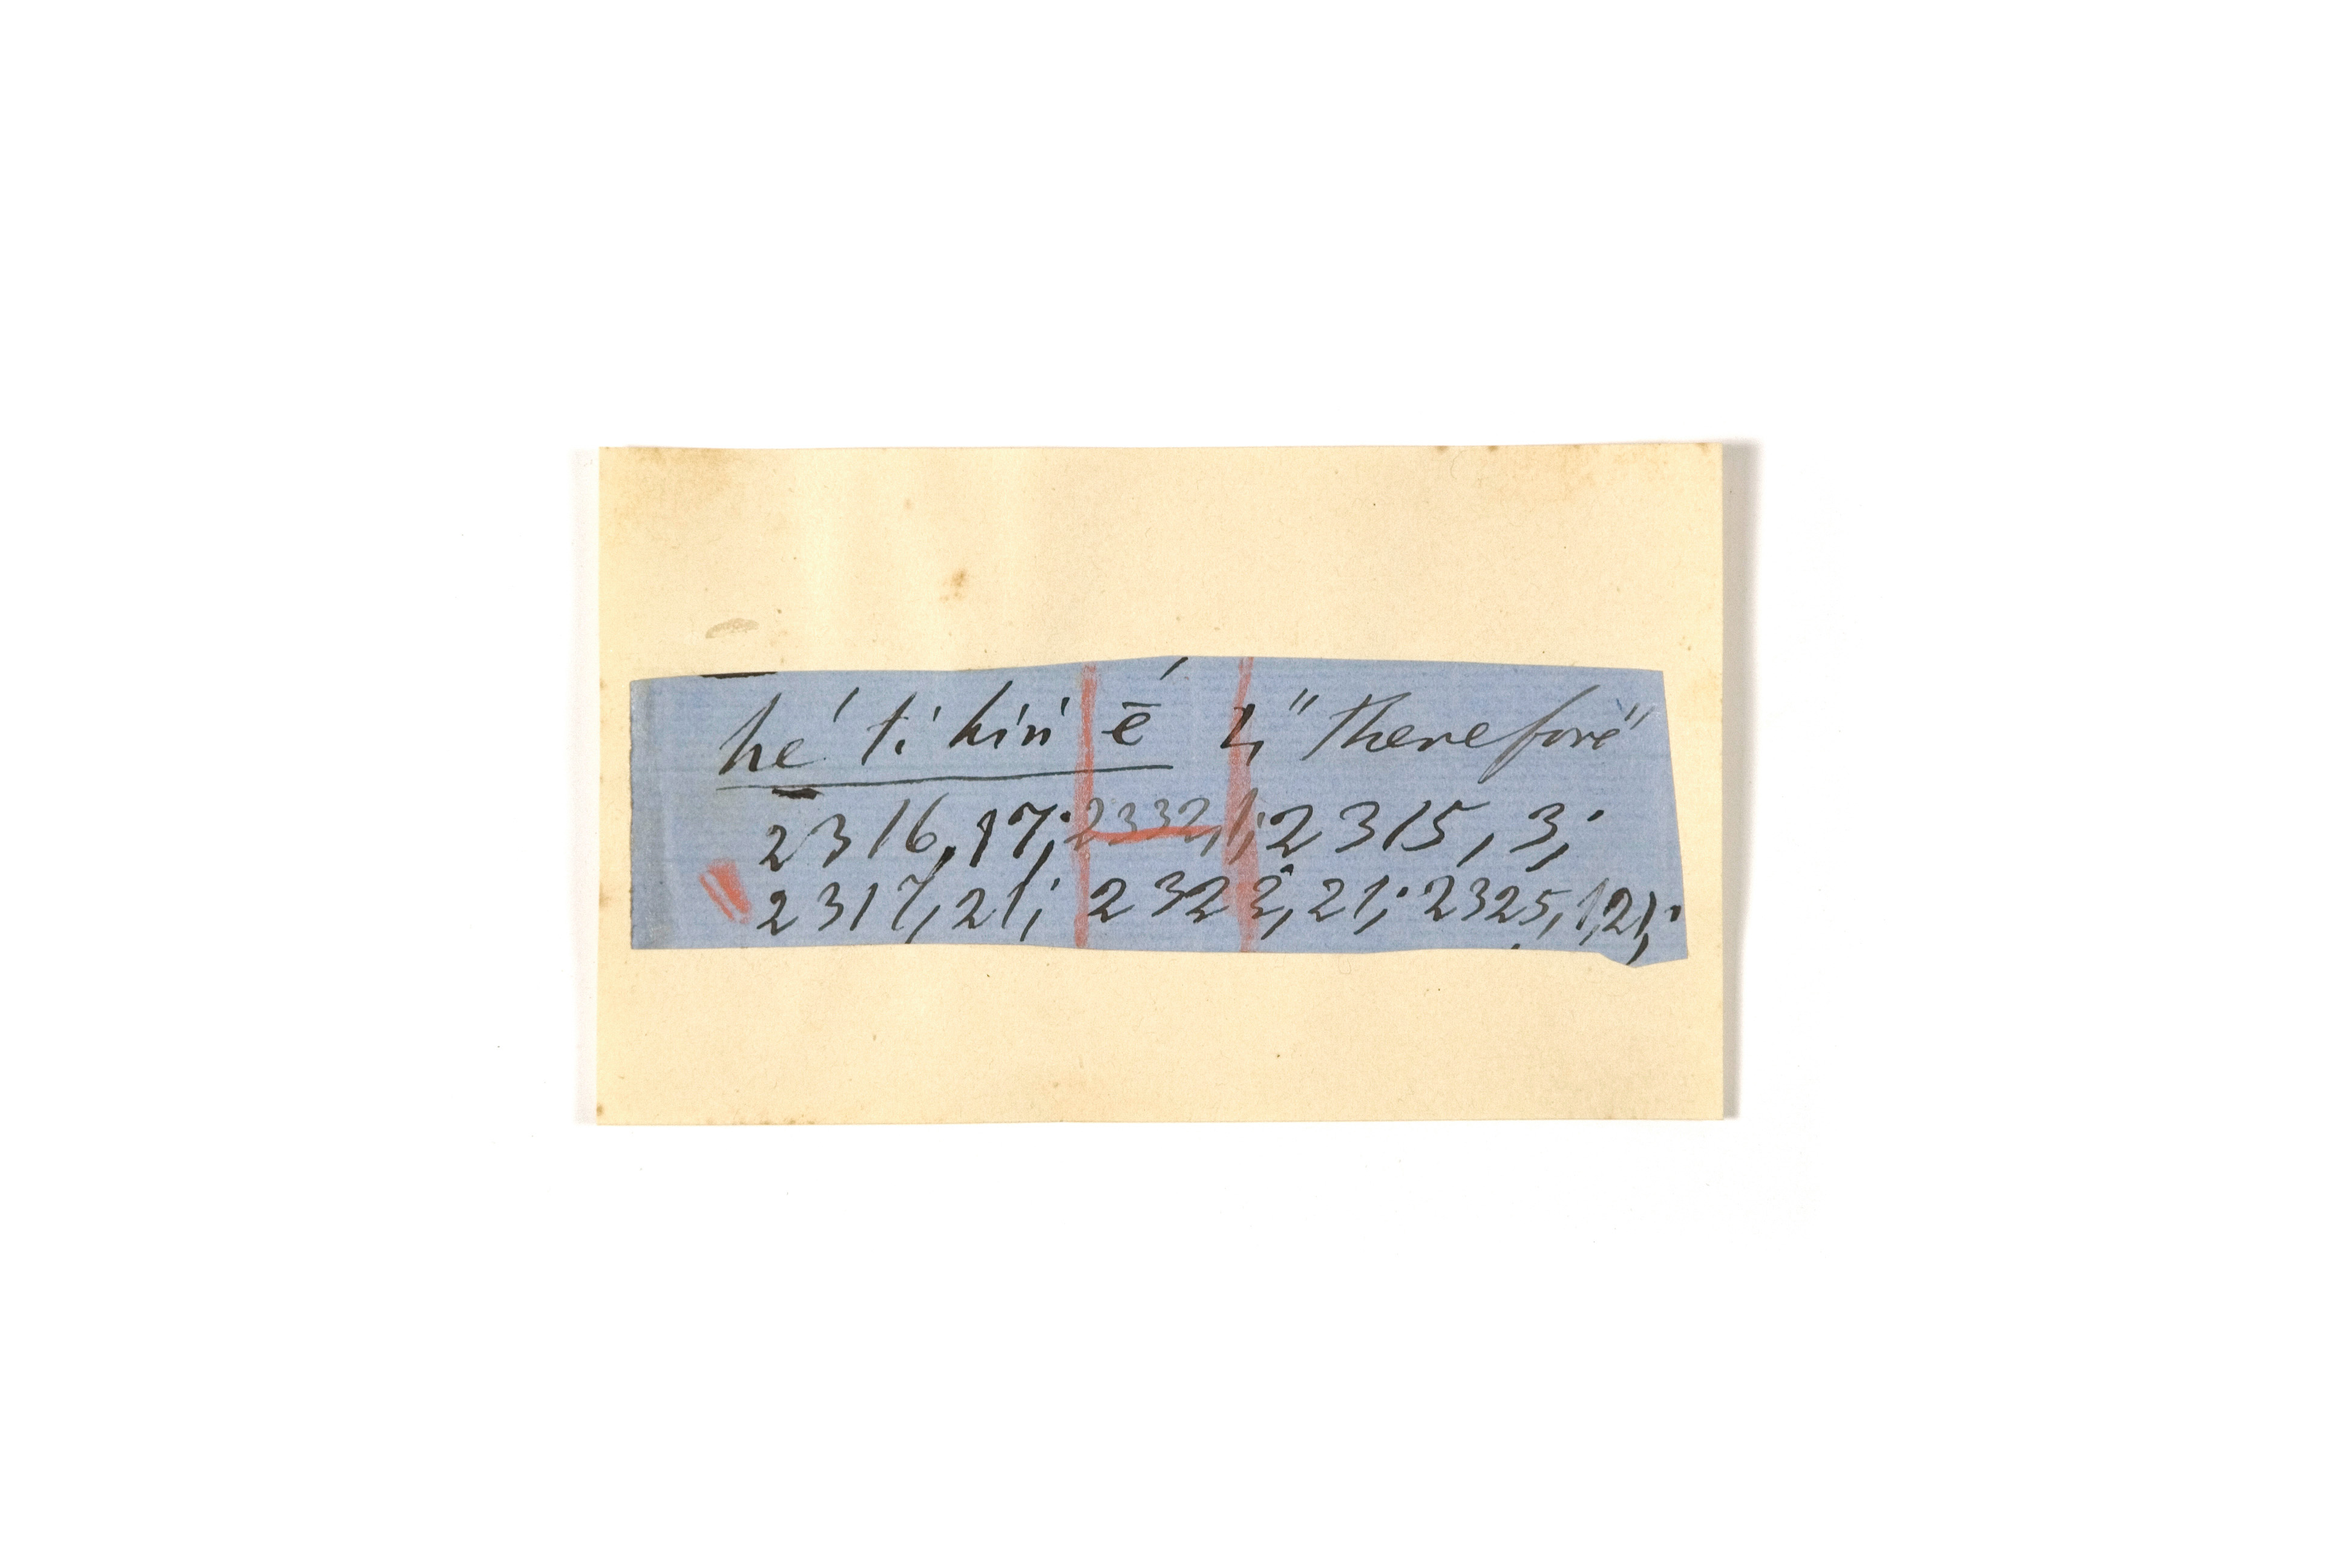 hé ti hiń ḗ 2, "therefore"
2316, 17; 2332, 1; 2315, 3;
2317, 21; 2322, 21; 2325, 1, 21;